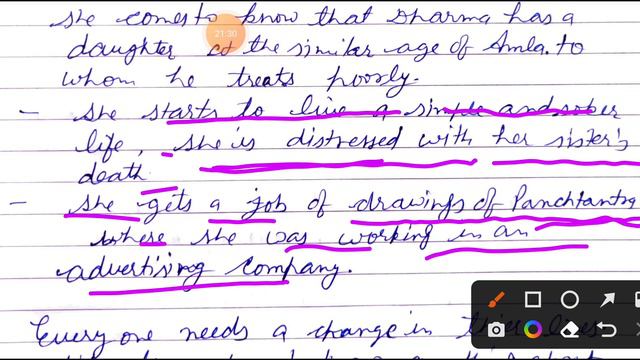 She comes to know that Dharma has a
21:30
daughter at the similar age of Amla. to
whom he treats poorly.
- She starts to live a simple and sober
life, she is distressed with her sister's
death
- She gets a job of drawings of Panchtantra
where she was working in an
advertising company.
Everyone needs a change in